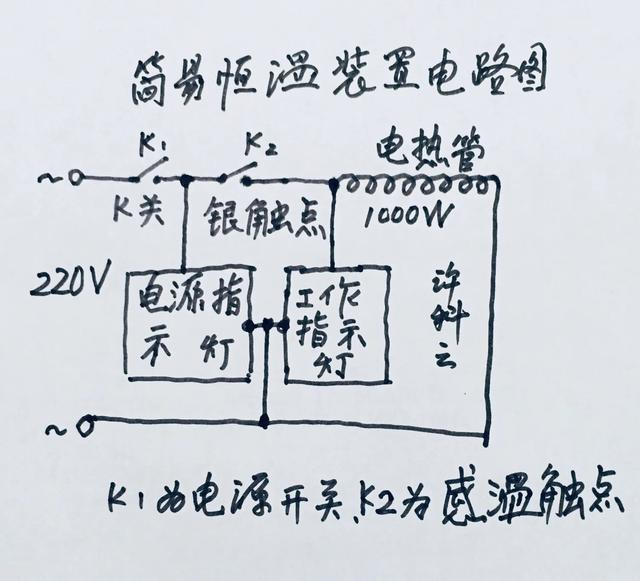 简易恒温装置电路图
K1
K2
电热管
~
K关
银触点
1000W
220V
电源指
示灯
工作
指示
灯
许科云
~
K1为电源开关、K2为感温触点